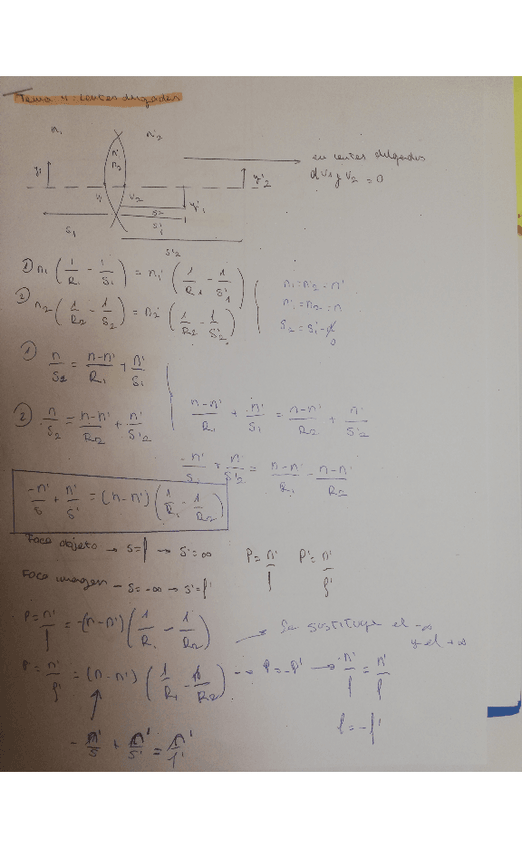 Tema 4: Lentes delgadas
n₁ n'₂
n'₁
n₂
en lentes delgadas
d v₁ y v₂ = 0
y₁ v₁ v₂ y'₁ y'₂
s₂
s₁ s'₁
s'₂
① n₁ (1/R₁ - 1/s₁) = n₁' (1/R₁ - 1/s'₁)
② n₂ (1/R₂ - 1/s₂) = n₂' (1/R₂ - 1/s'₂)
n₁ = n'₂ = n'
n'₁ = n₂ = n
s₂ = s'₁ - d
0
① n/s₂ = n-n'/R₁ + n'/s₁
② n/s₂ = n-n'/R₂ + n'/s'₂
n-n'/R₁ + n'/s₁ = n-n'/R₂ + n'/s'₂
-n'/s₁ + n'/s'₂ = n-n'/R₁ - n-n'/R₂
-n'/s + n'/s' = (n-n') (1/R₁ - 1/R₂)
Foco objeto → s=f → s'=∞
P = n'/f P' = n'/f'
Foco imagen - s=-∞ → s'=f'
P = n'/f = -(n-n') (1/R₁ - 1/R₂)
→ Se sustituye el -∞
y el +∞
P = n'/f' = (n-n') (1/R₁ - 1/R₂) → P = -P' → -n'/f = n'/f'
f = -f'
-n'/s + n'/s' = n'/f'